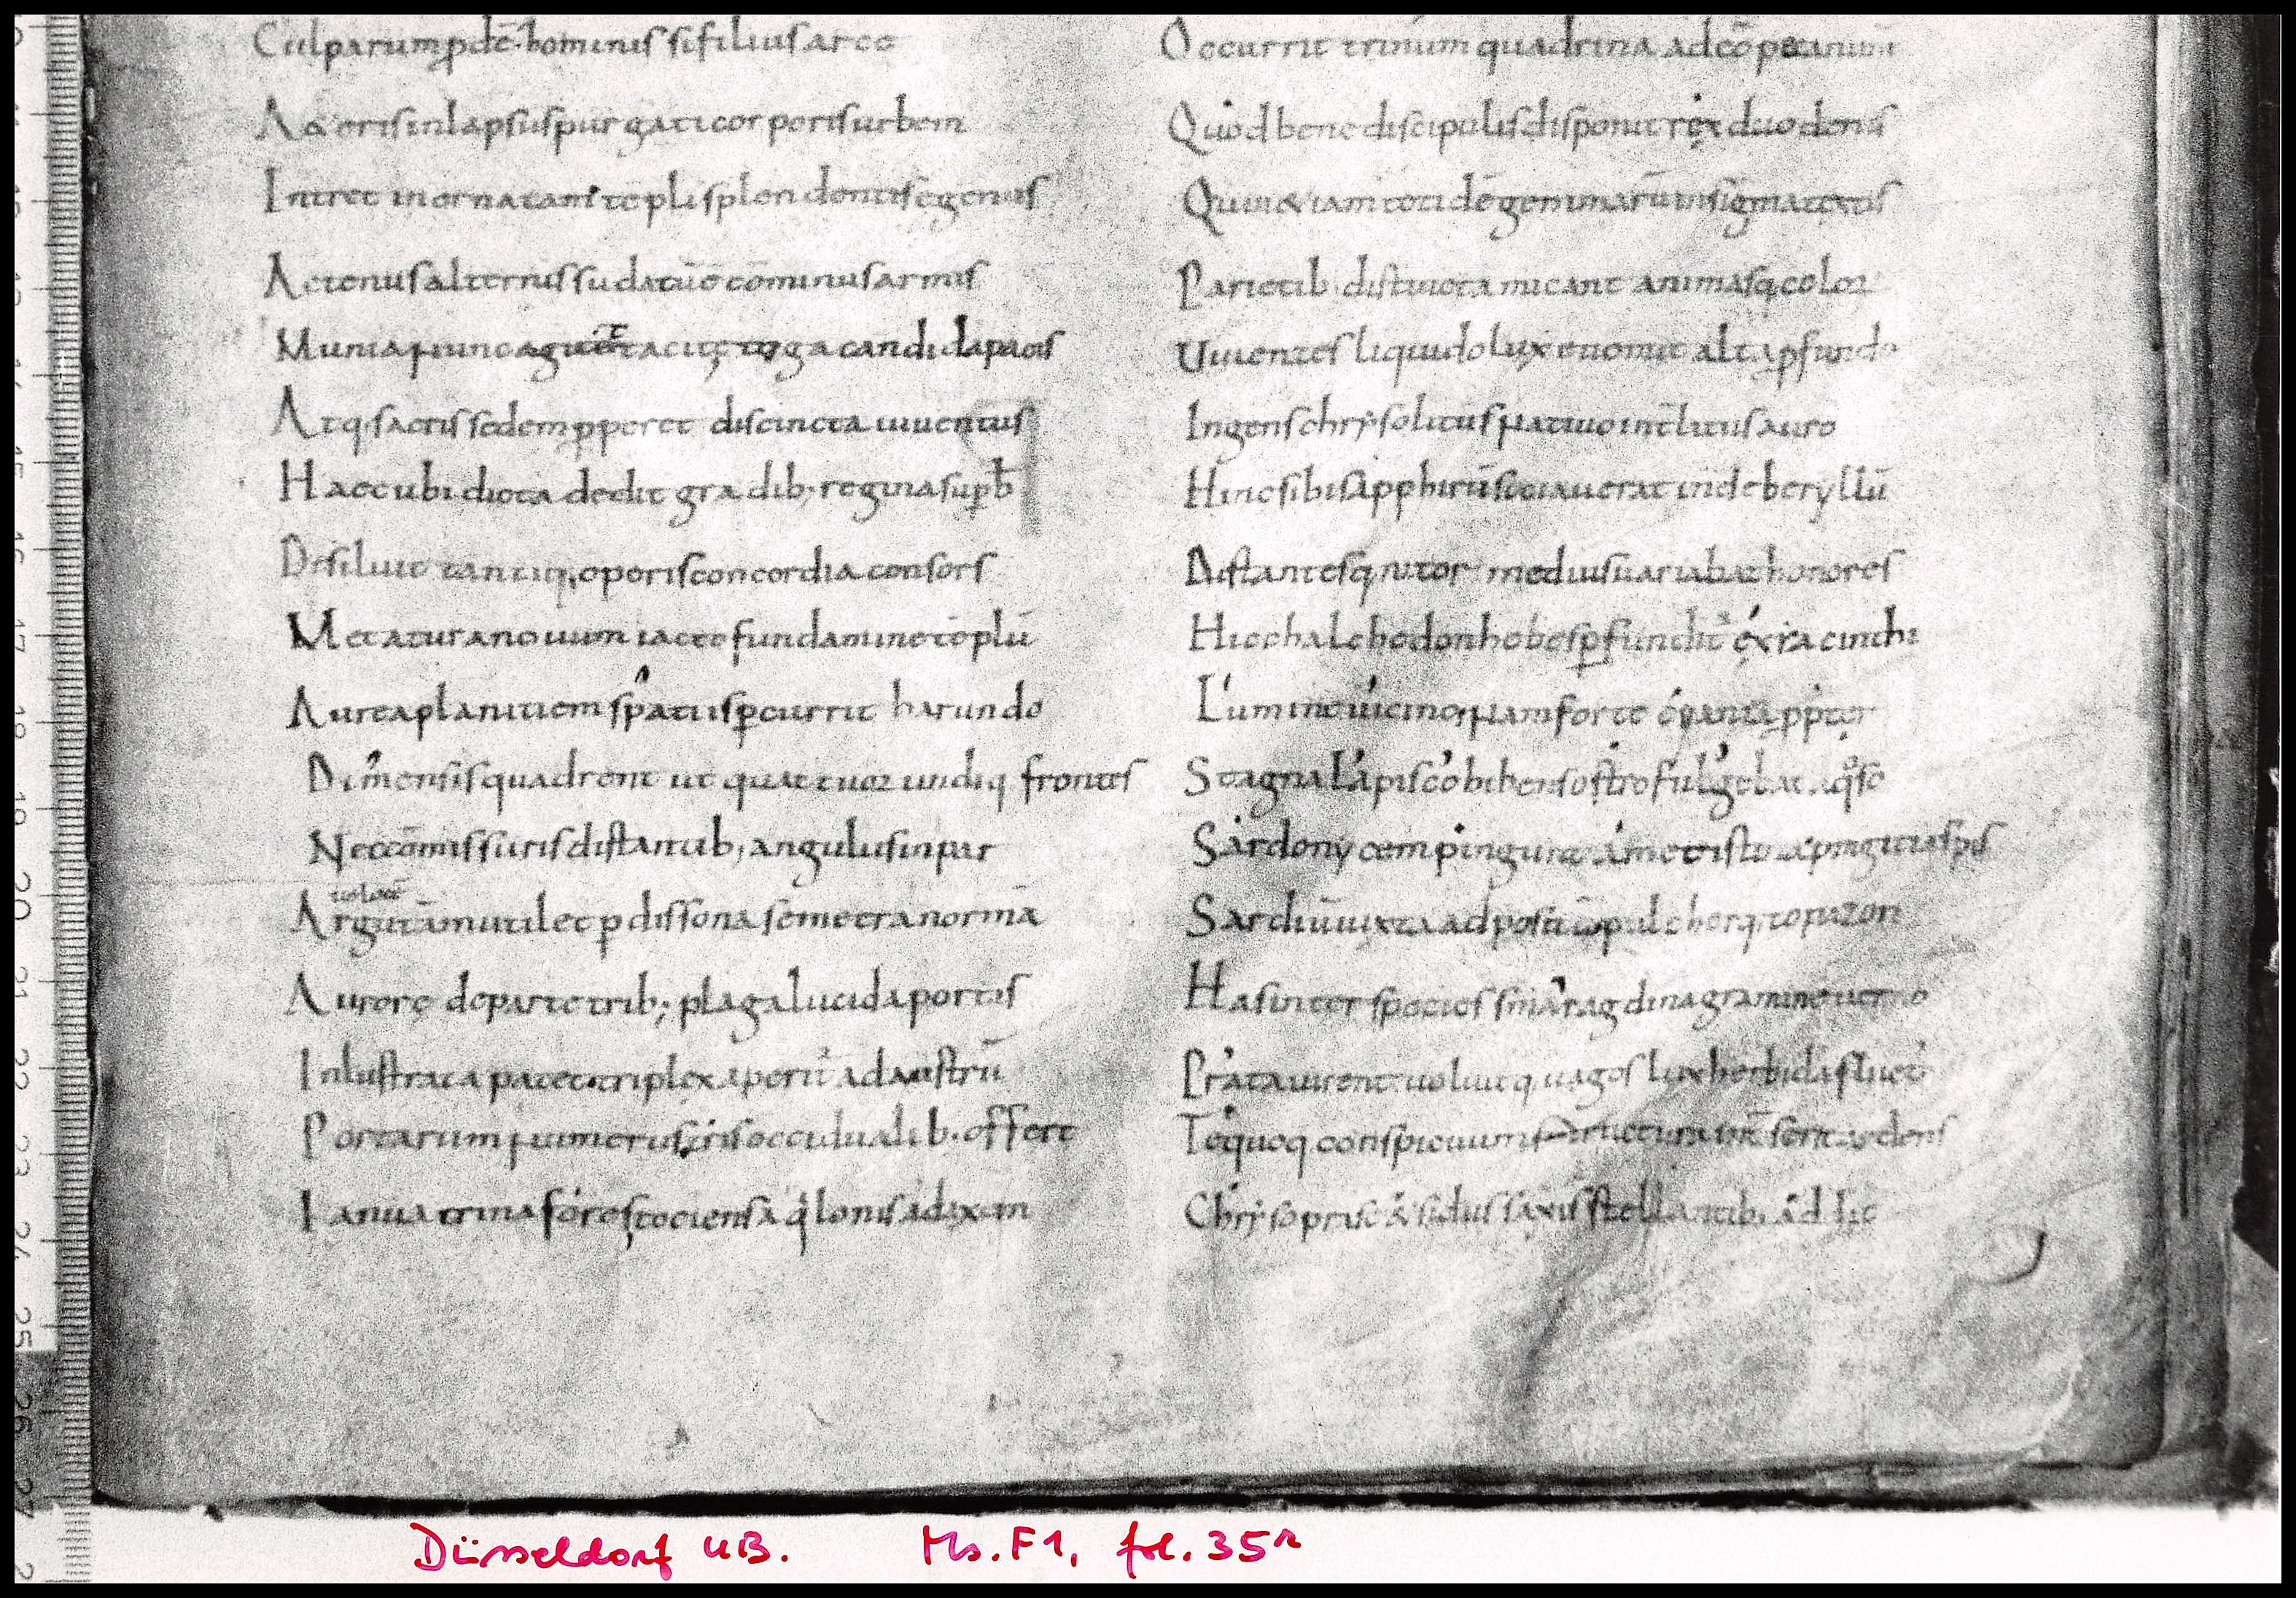 Culparum pdē hominis si filius arce
Aetheris inlapsus purgati corporis urbem
Intret inornatam tēpli splendentis egenus
Actenus alternis sudatū ē cominus armis
Munia nunc agitet tacitę toga candida pacis
Atq; sacris sedem pperet discincta iuuentus
Haec ubi dicta dedit gradib; regina supb
Desiluit tantiq; operis concordia consors
Metatura nouum iacto fundamine tēplū
Aurea planitiem spatiis pcurrit harundo
Dimensis quadrent ut quattuor undiq frontes
Nec cōmissuris distantib; angulus inpar
Argutā mutilet p dissona semetra normā
Aurorę de parte trib; plaga lucida portis
Inlustrata patet triplex aperit ad austrū
Portarum numerus tris occidualib. offert
Ianua trina fores toties aqlonis ad axem
Occurrit trinum quadrina ad cōpita num
Quod bene discipulis disponit rex duodenis
Quin & iam totidē gemmarū insignia textis
Parietib distincta micant animasq color
Uiuentes liquido lux euomit alta pfundo
Ingens chrysolitus natiuo intlitus auro
Hinc sibi sapphirū sociauerat inde beryllū
Distantesq nitor medius uariabat honores
Hic chalchedon hebes pfundit ex iacinthi
Lumine uicino nam forte cyanea pp
Stagna lapis cohibens ostro fulgebat aqso
Sardonycem pingunt ametisto pingit iaspis
Sardiū iuxta adpositū pulcherq; topazon
Has inter species smaragdina gramine uerno
Prata uirent uoluitq uagos lux herbida fluct
Te quoq conspicuum structura inserit ardens
Chrysoprase & sidus saxis stellantib; addit
Düsseldorf UB. Ms. F1, fol. 35r